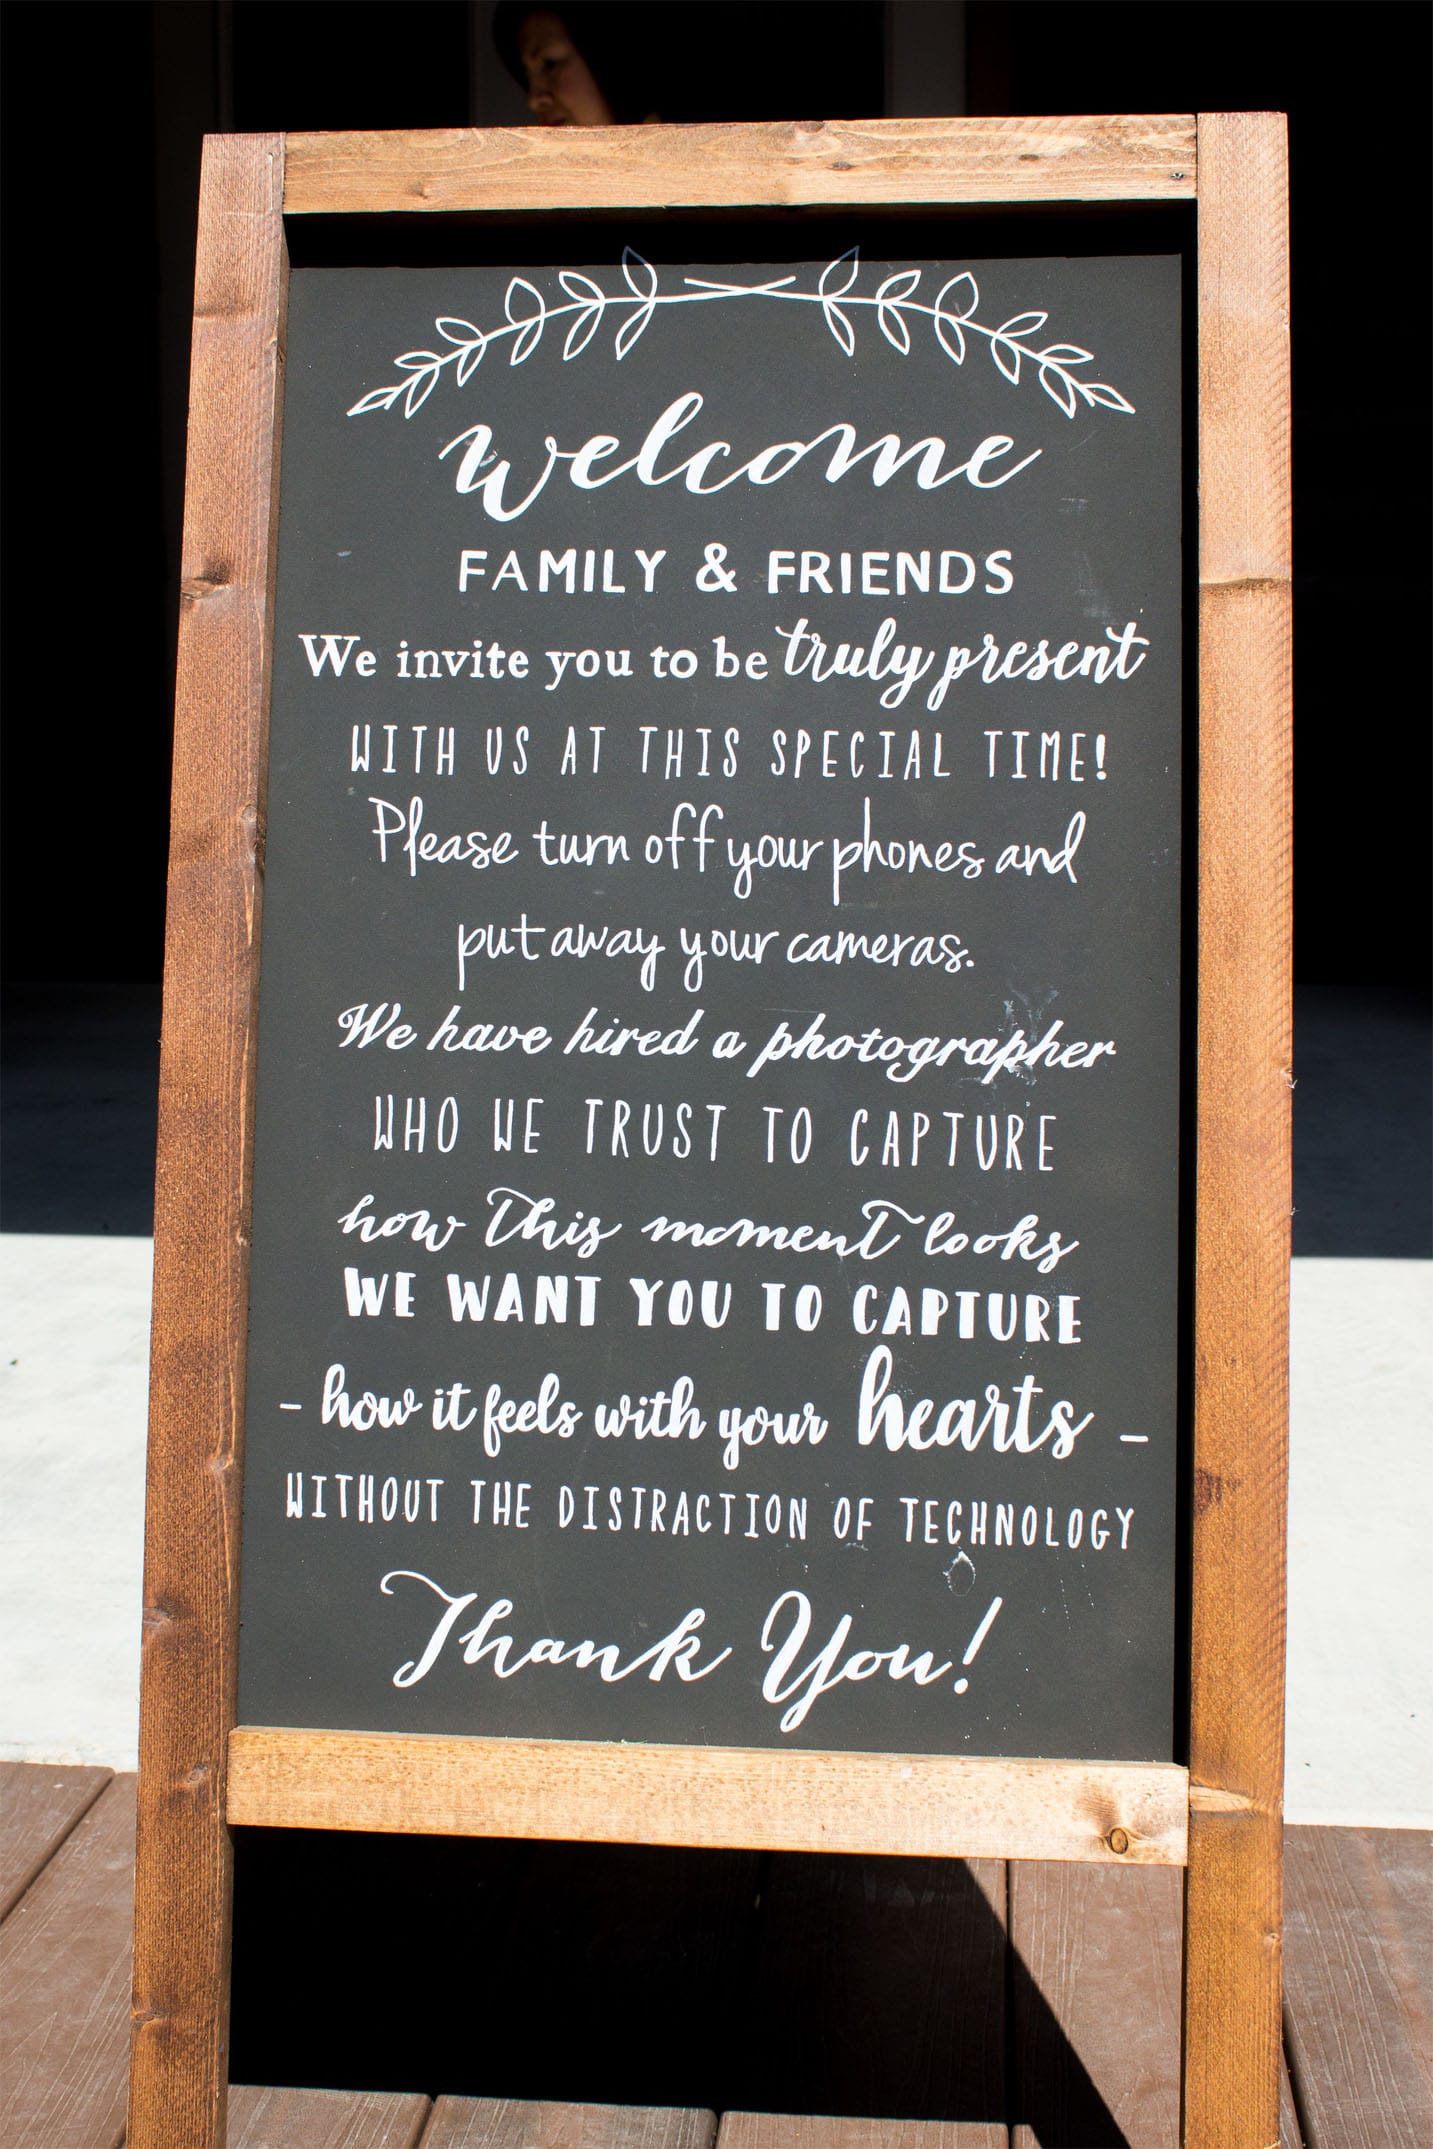 welcome
FAMILY & FRIENDS
We invite you to be truly present
WITH US AT THIS SPECIAL TIME!
Please turn off your phones and
put away your cameras.
We have hired a photographer
WHO WE TRUST TO CAPTURE
how this moment looks
WE WANT YOU TO CAPTURE
- how it feels with your hearts -
WITHOUT THE DISTRACTION OF TECHNOLOGY
Thank You!